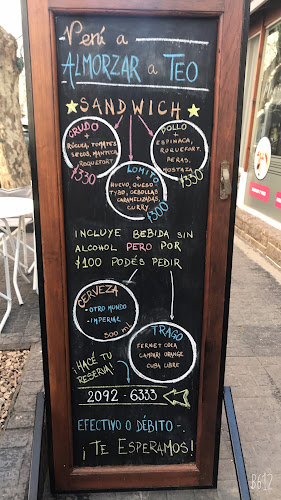 Vení a
ALMORZAR a TEO
SANDWICH
CRUDO
+
RÚCULA, TOMATES
SECOS, MANTECA
ROQUEFORT.
$330
POLLO
+
ESPINACA,
ROQUEFORT,
PERAS,
MOSTAZA
$330
LOMITO
+
HUEVO, QUESO
TYBO, CEBOLLAS
CARAMELIZADAS,
CURRY.
$300
INCLUYE BEBIDA SIN
ALCOHOL PERO POR
$100 PODÉS PEDIR
CERVEZA
- OTRO MUNDO
- IMPERIAL
500 ml
TRAGO
FERNET COLA
CAMPARI ORANGE
CUBA LIBRE
¡HACÉ TU
RESERVA!
2092-6333
EFECTIVO O DÉBITO -.
¡TE ESPERAMOS!
B612